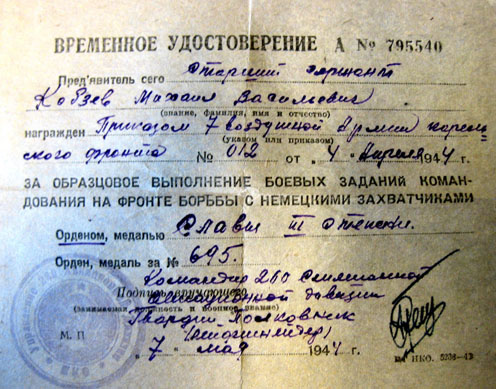 ВРЕМЕННОЕ УДОСТОВЕРЕНИЕ А № 795540
Пред'явитель сего Старший сержант
Кобзев Михаил Васильевич
(звание, фамилия, имя и отчество)
награжден Приказом 7 Воздушной Армии Карель-
ского фронта № 012 от 4 Апреля 1944 г.
(указом или приказом)
ЗА ОБРАЗЦОВОЕ ВЫПОЛНЕНИЕ БОЕВЫХ ЗАДАНИЙ КОМАН-
ДОВАНИЯ НА ФРОНТЕ БОРЬБЫ С НЕМЕЦКИМИ ЗАХВАТЧИКАМИ
Орденом, медалью Славы III степени.
Орден, медаль за № 695.
Командир 260 Смешанной
Подпись вручающего авиационной дивизии
(занимаемая должность и военное звание)
Гвардии Полковник
М. П.
7 мая 1944 г.
НКО.